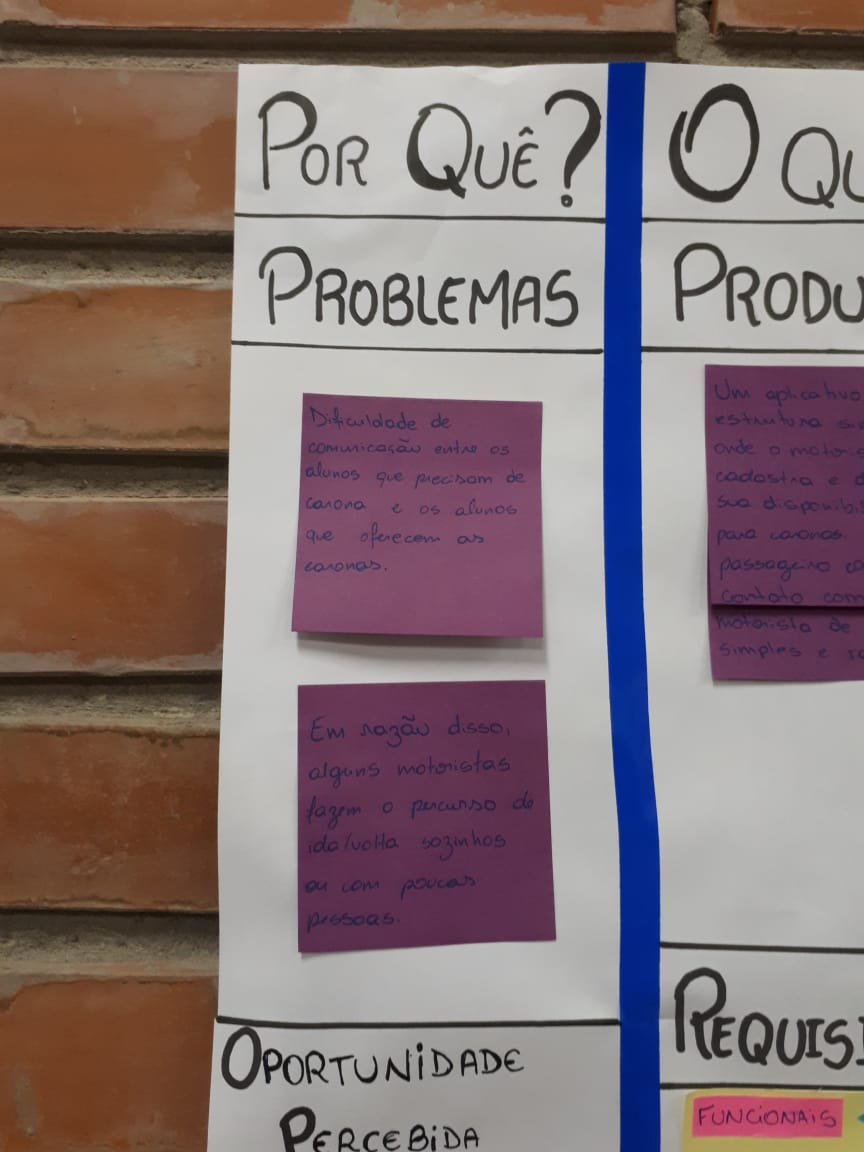 POR QUÊ?
PROBLEMAS
Dificuldade de
comunicação entre os
alunos que precisam de
carona e os alunos
que oferecem as
caronas.
Em razão disso,
alguns motoristas
fazem o percurso de
ida/volta sozinhos
ou com poucas
pessoas.
OPORTUNIDADE
PERCEBIDA
O QU
PRODU
Um aplicativo
estrutura si
onde o motoris
cadastra e d
sua disponibi
para caronas.
passageiro
contato com
motorista de
simples e
REQUISI
FUNCIONAIS